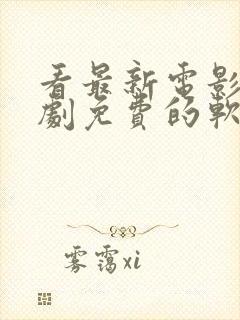 看最新電影
劇免費的軟
雾霭xi